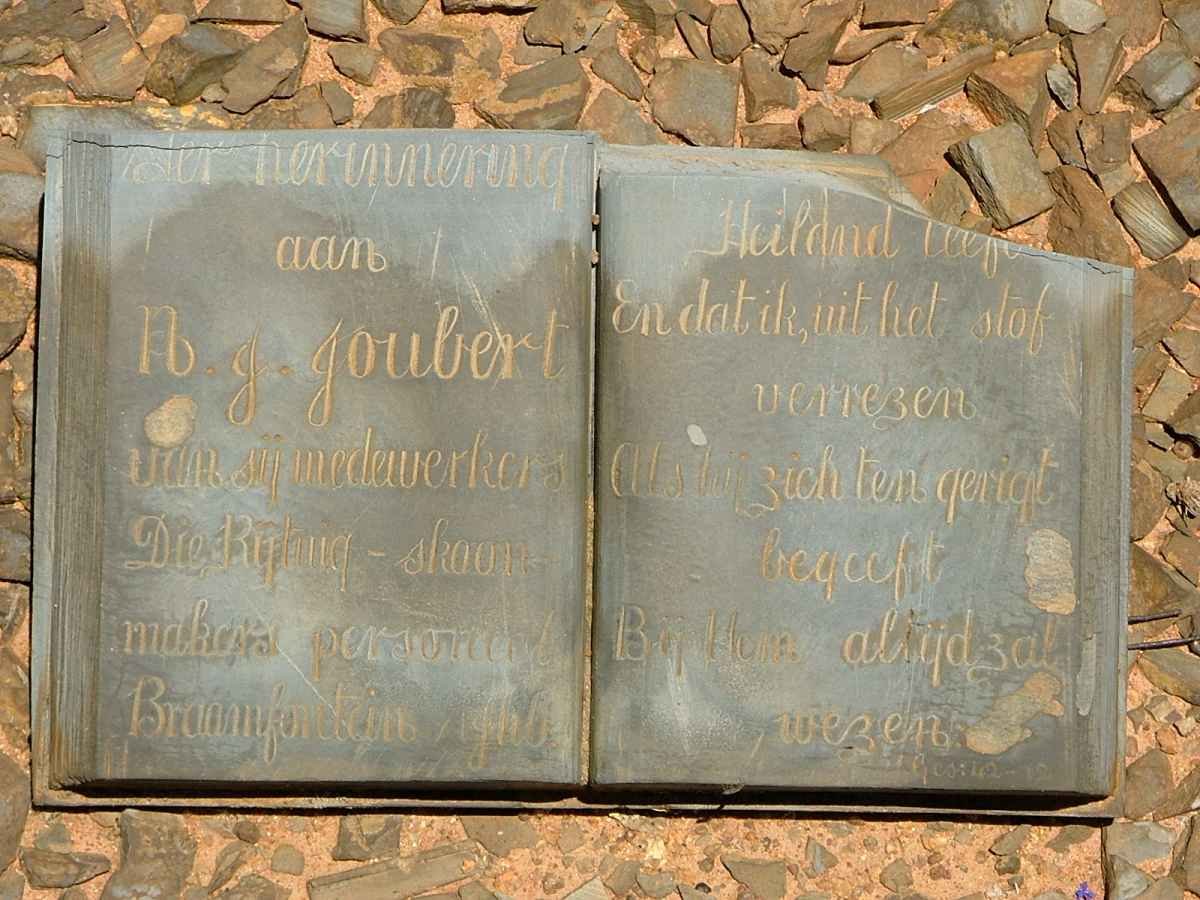 Ter herinnering
aan
N. J. Joubert
van sij medewerkers
Die Rijtuig-skoon-
makers personeel
Braamfontein, Jhb.
Heiland leeft
En dat ik, uit het stof
verrezen
Als hij zich ten gerigt
begeeft
Bij Hem altijd zal
wezen.